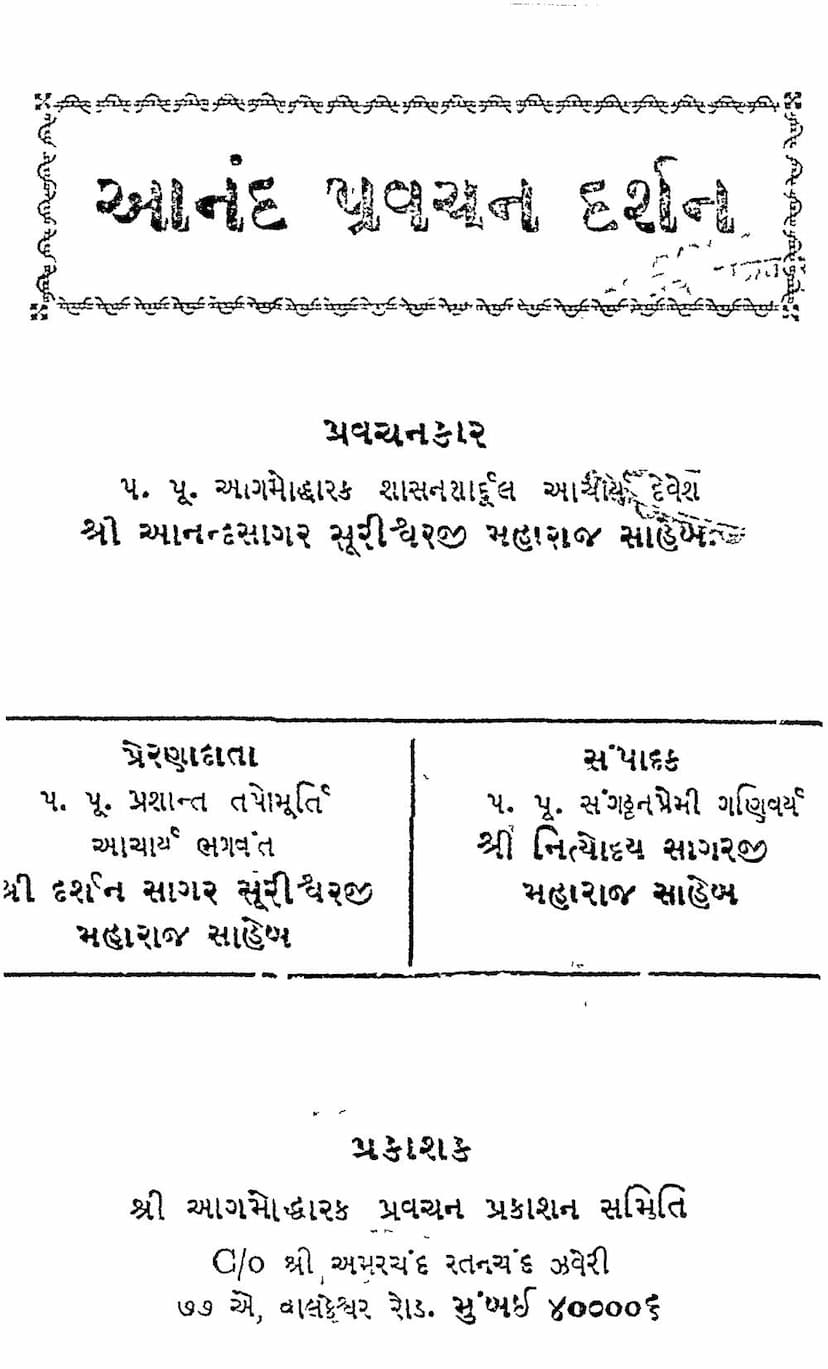 આનંદ પ્રવચન દર્શન
પ્રવચનકાર
પ. પૂ. આગમોદ્ધારક શાસનશાર્દૂલ આચાર્ય દેવેશ
શ્રી આનન્દસાગર સૂરીશ્વરજી મહારાજ સાહેબ
પ્રેરણાદાતા
પ. પૂ. પ્રશાન્ત તપોમૂર્તિ
આચાર્ય ભગવંત
શ્રી દર્શન સાગર સૂરીશ્વરજી
મહારાજ સાહેબ
સંપાદક
પ. પૂ. સંગઠ્ઠનપ્રેમી ગણિવર્ય
શ્રી નિત્યોદય સાગરજી
મહારાજ સાહેબ
પ્રકાશક
શ્રી આગમોદ્ધારક પ્રવચન પ્રકાશન સમિતિ
C/o શ્રી અમરચંદ રતનચંદ ઝવેરી
૭૭ એ, વાલકેશ્વર રોડ. મુંબઈ ૪૦૦૦૦૬